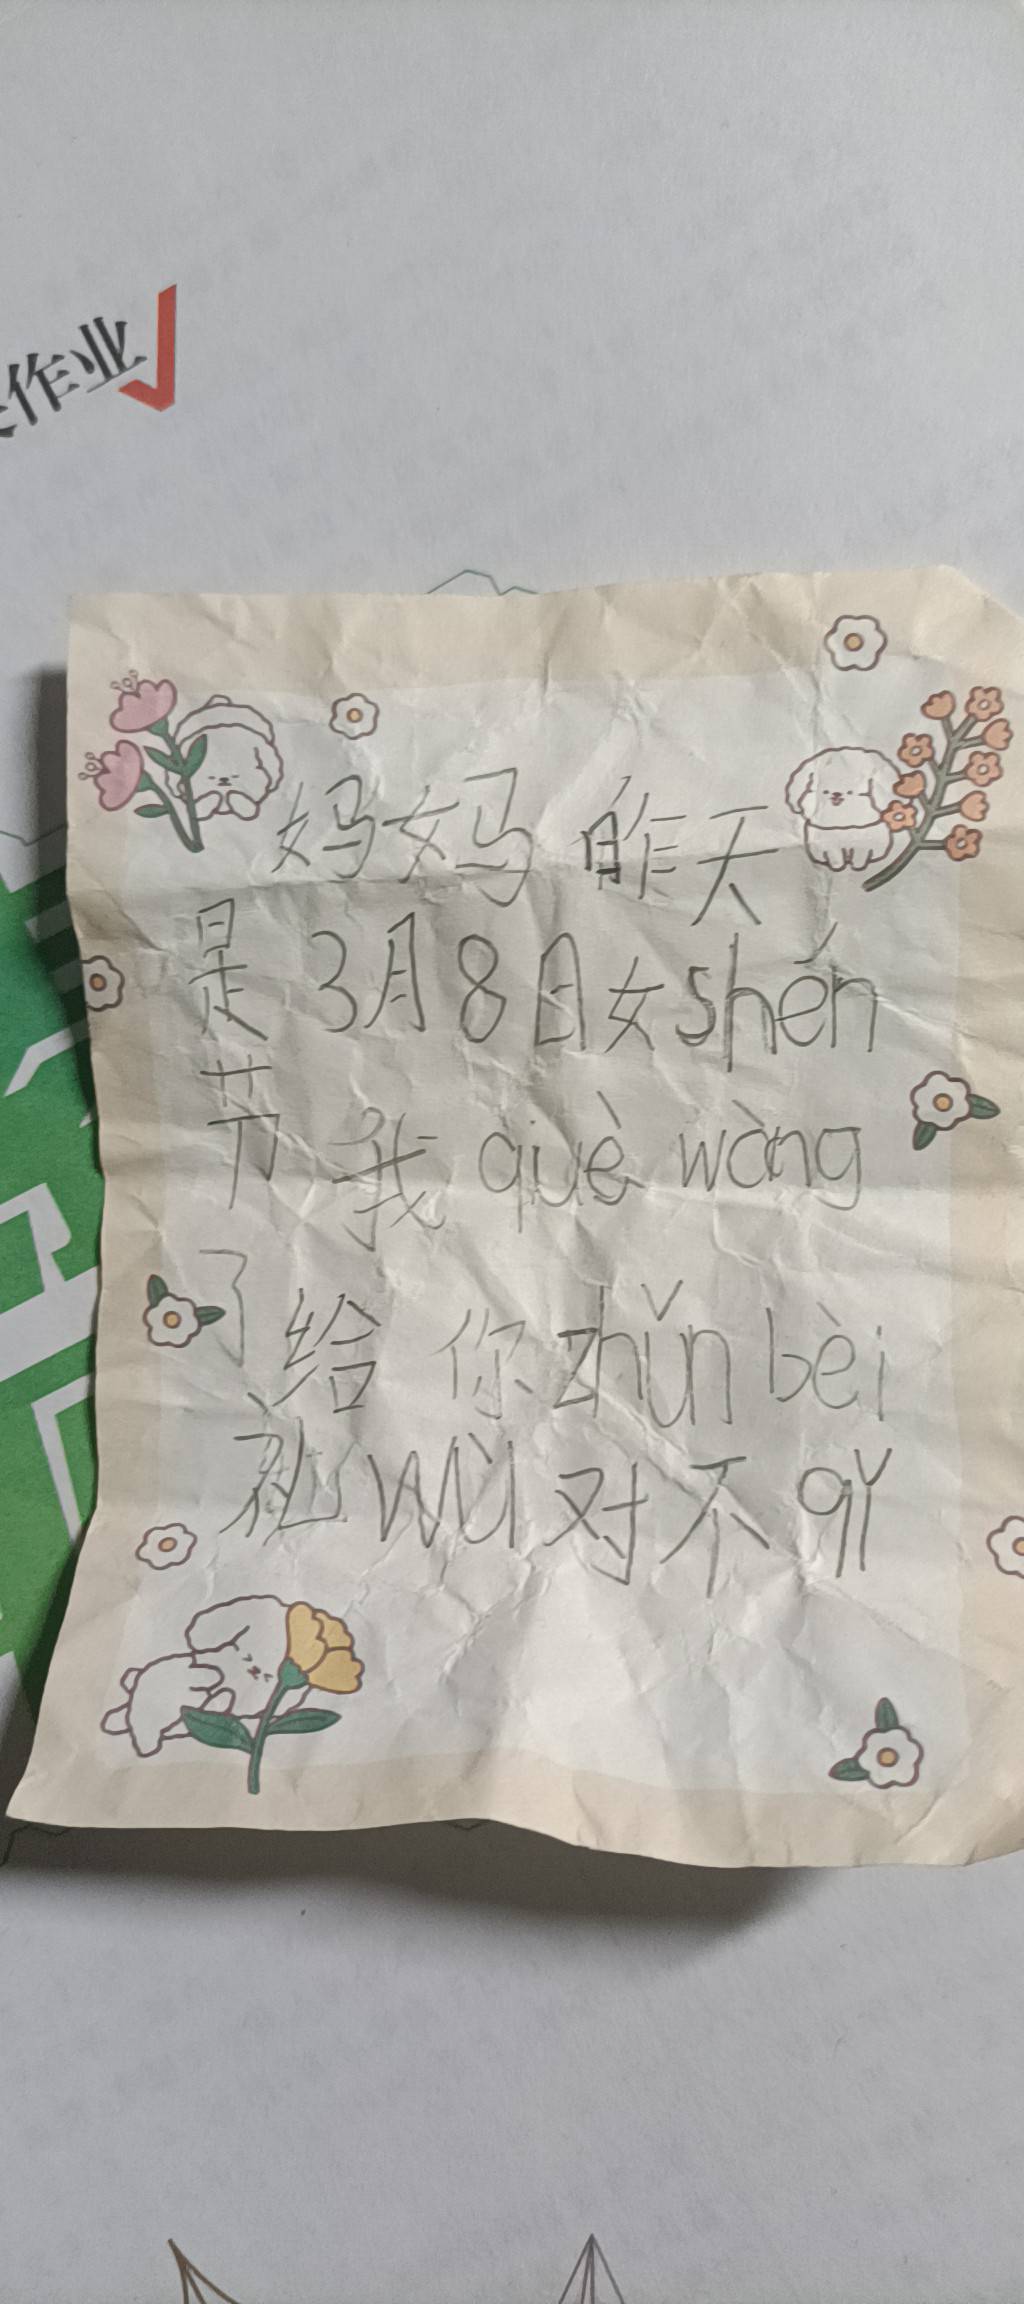 作业
妈妈 昨天
是3月8日女shén
节我 què wàng
了给 你zhǔn bèi
礼wù对不qǐ